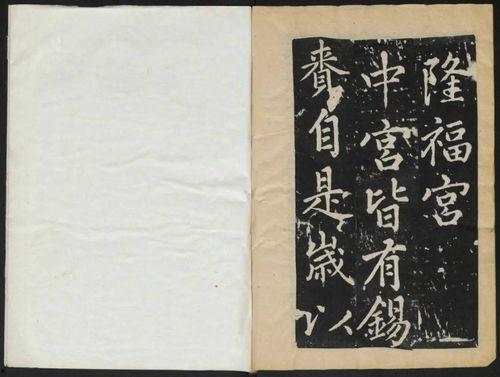 隆福宮
中宮皆有錫
賚自是歲以